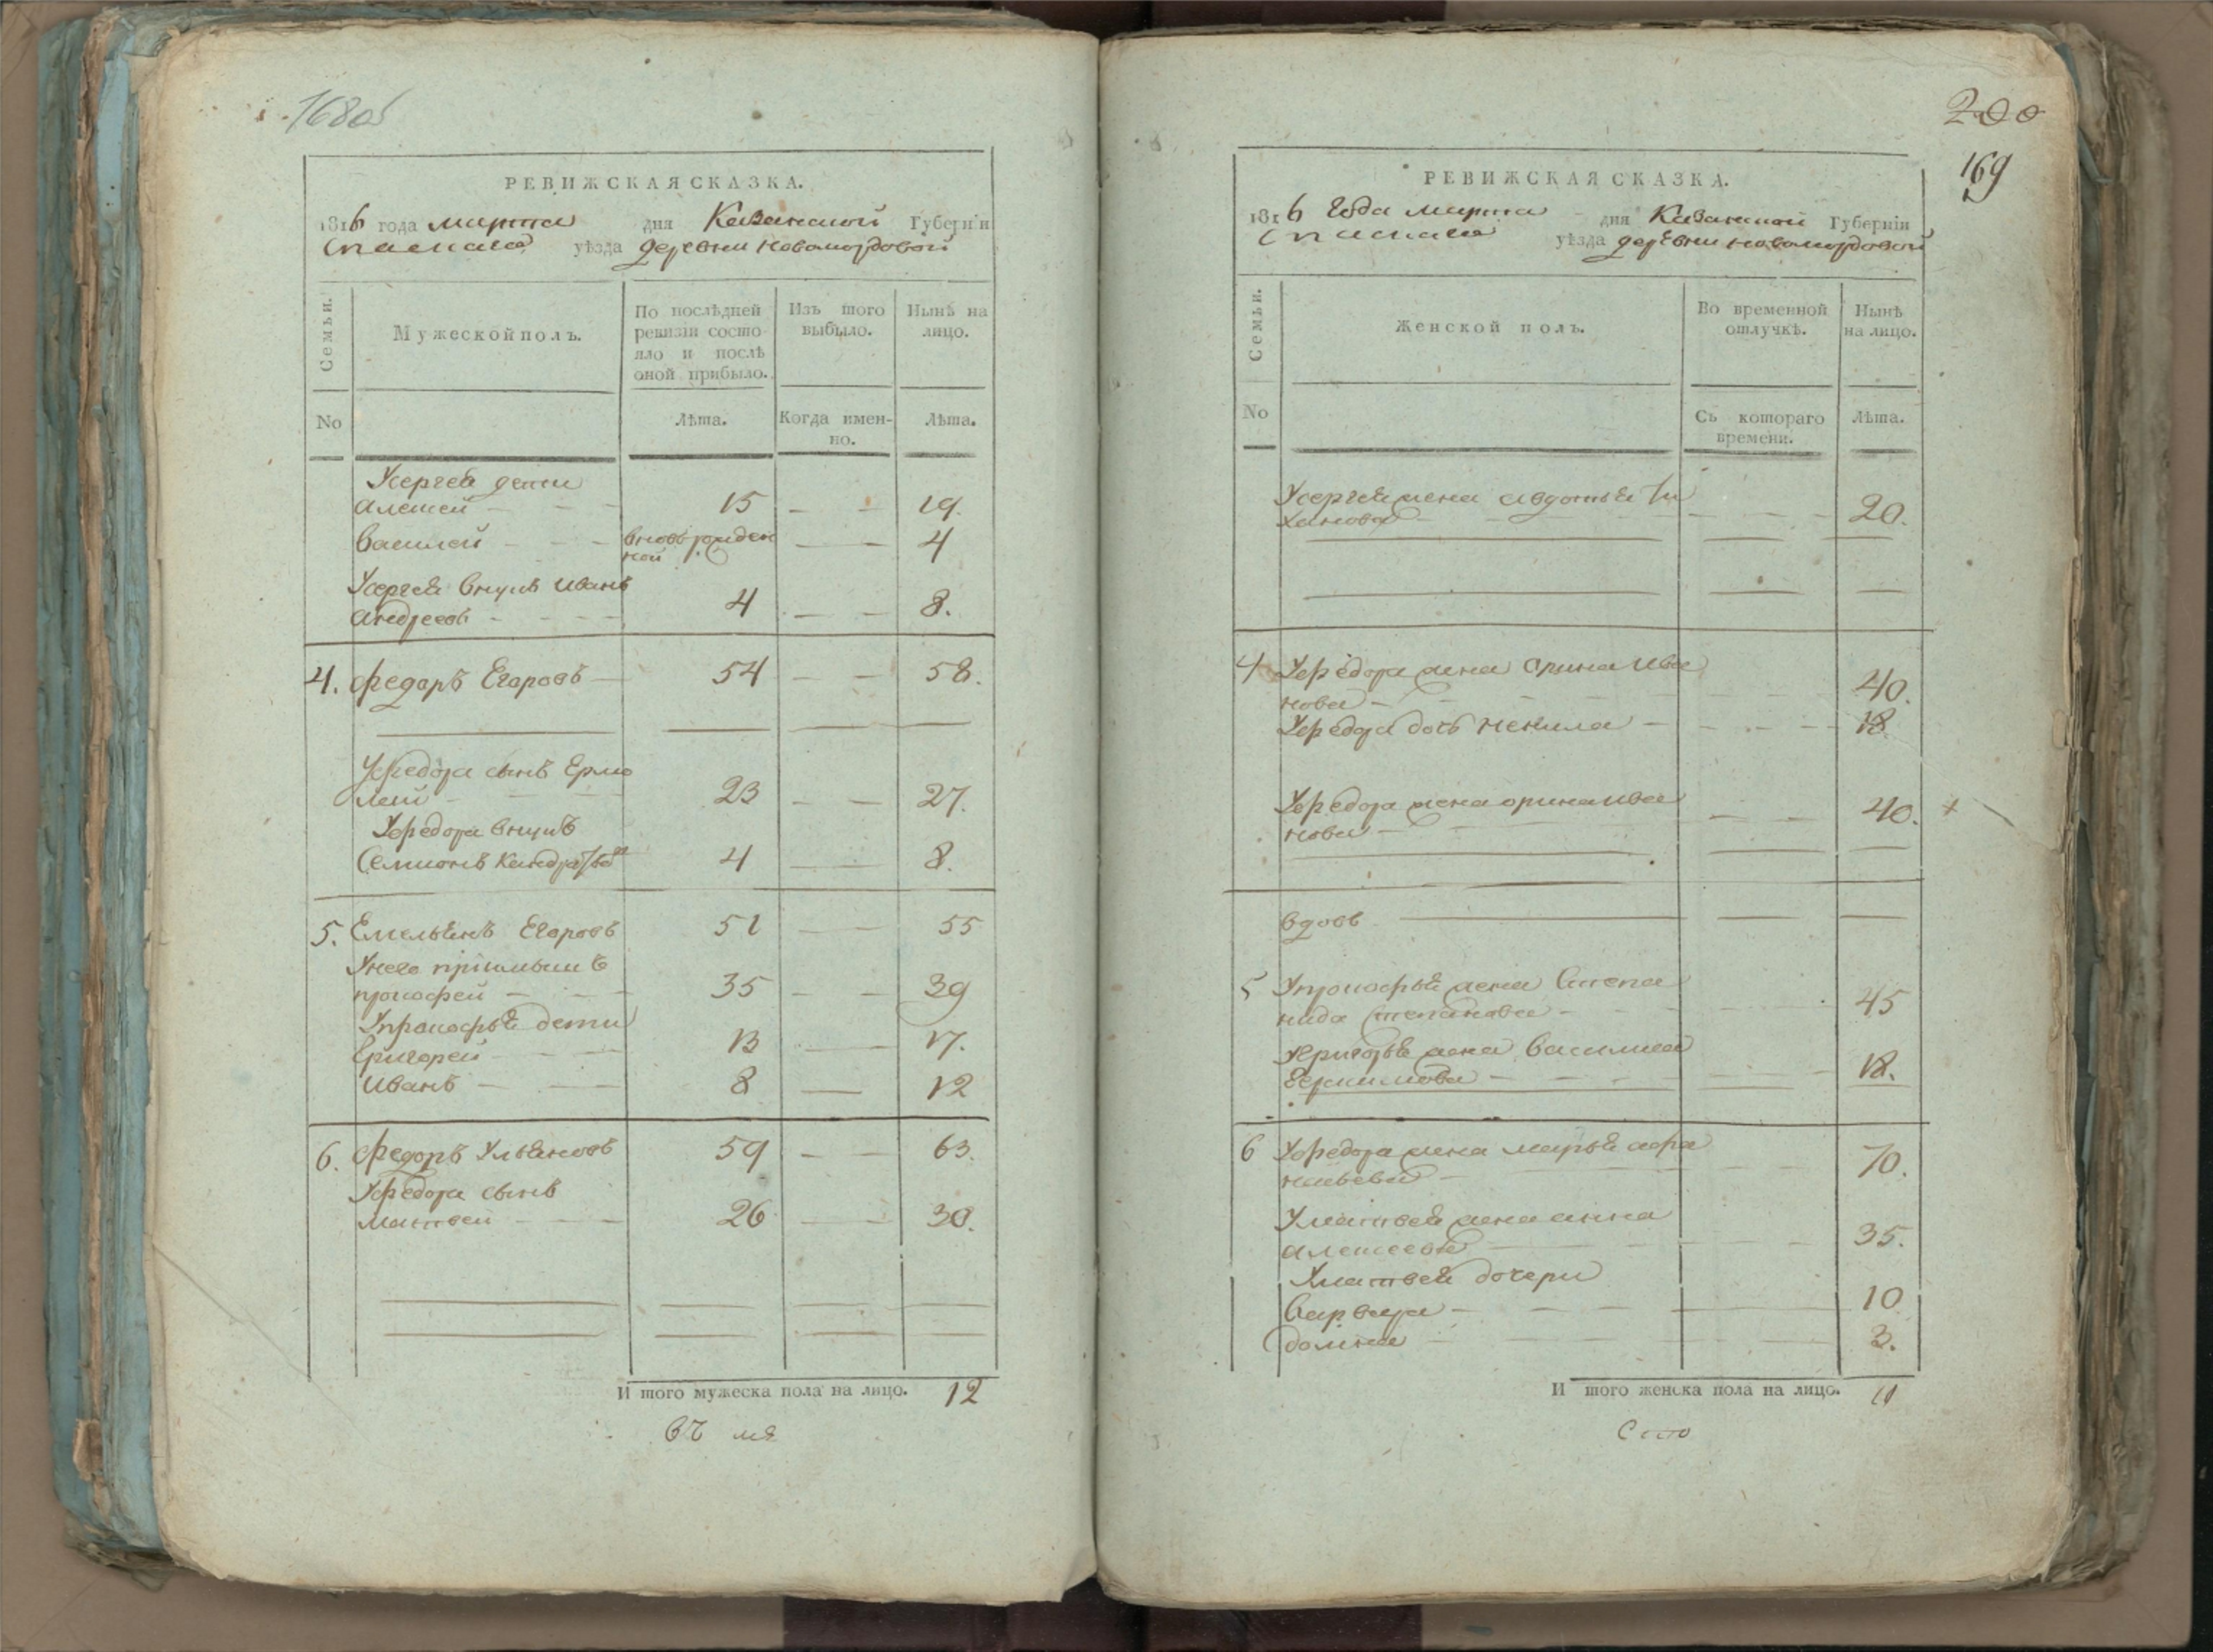 168об
РЕВИЖСКАЯ СКАЗКА.
1816 года марта дня Казанской Губерніи
Спаскаго уѣзда деревни Новомордовой
Семьи.
Мужеской полъ.
По послѣдней ревизіи состояло и послѣ оной прибыло.
Изъ того выбыло.
Нынѣ на лицо.
No
Лѣта.
Когда именно.
Лѣта.
Усергея дети
Алексей 15 19.
Василей вновьрожден
ной 4
Усергея внукъ Иванъ
Андреевъ 4 8.
4. Федоръ Егоровъ 54 58.
Уфедора сынъ Ермо
лай 23 27.
Уфедора внукъ
Семионъ Кандратьевъ 4 8.
5. Емельянъ Егоровъ 51 55
Унего приимышъ
прокофей 35 39
Упрокофья дети
Григорей 13 17.
Иванъ 8 12
6. Федоръ Ульяновъ 59 63.
Уфедора сынъ
Матвей 26 30.
И того мужеска пола на лицо. 12
200
169
РЕВИЖСКАЯ СКАЗКА.
1816 года марта дня Казанской Губерніи
Спаскаго уѣзда деревни новомордовой
Семьи.
Женской полъ.
Во временной отлучкѣ.
Нынѣ на лицо.
No
Съ котораго времени.
Лѣта.
Усергея жена авдотья
20.
4 Уфедора жена Орина Ива
нова 40.
Уфедора дочь ненила 18
Уфедора жена орина ива
нова 40. +
вдовъ
5 Упрокофья жена Степа
нида Степанова 45
Угригорья жена Василиса
18.
6 Уфедора жена марья афа
насьева 70.
Уматвея жена анна
алексеева 35.
Уматвея дочери
Варвара 10
домна 3.
И того женска пола на лицо. 11